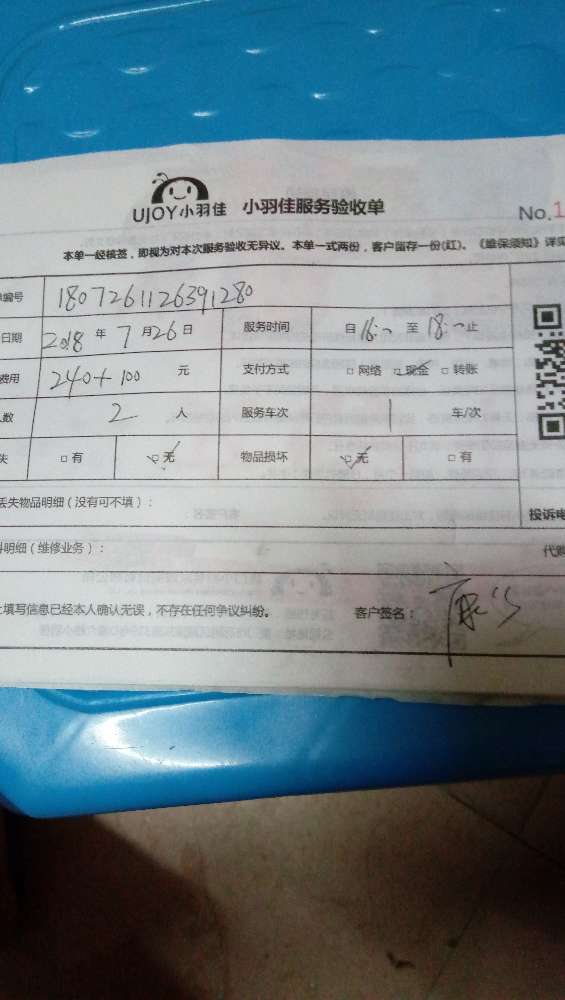 UJOY小羽佳 小羽佳服务验收单
No.1
本单一经核签，即视为对本次服务验收无异议。本单一式两份，客户留存一份(红)。《维保须知》详
编号 1807261126391280
日期 2018 年 7 月 26 日 服务时间 自 16:~ 至 18:~ 止
费用 240+100 元 支付方式 □ 网络 □ 现金 □ 转账
人数 2 人 服务车次 1 车/次
失 □ 有 □ 无 物品损坏 □ 无 □ 有
丢失物品明细（没有可不填）： 投诉电
料明细（维修业务）： 代购
上填写信息已经本人确认无误，不存在任何争议纠纷。 客户签名：